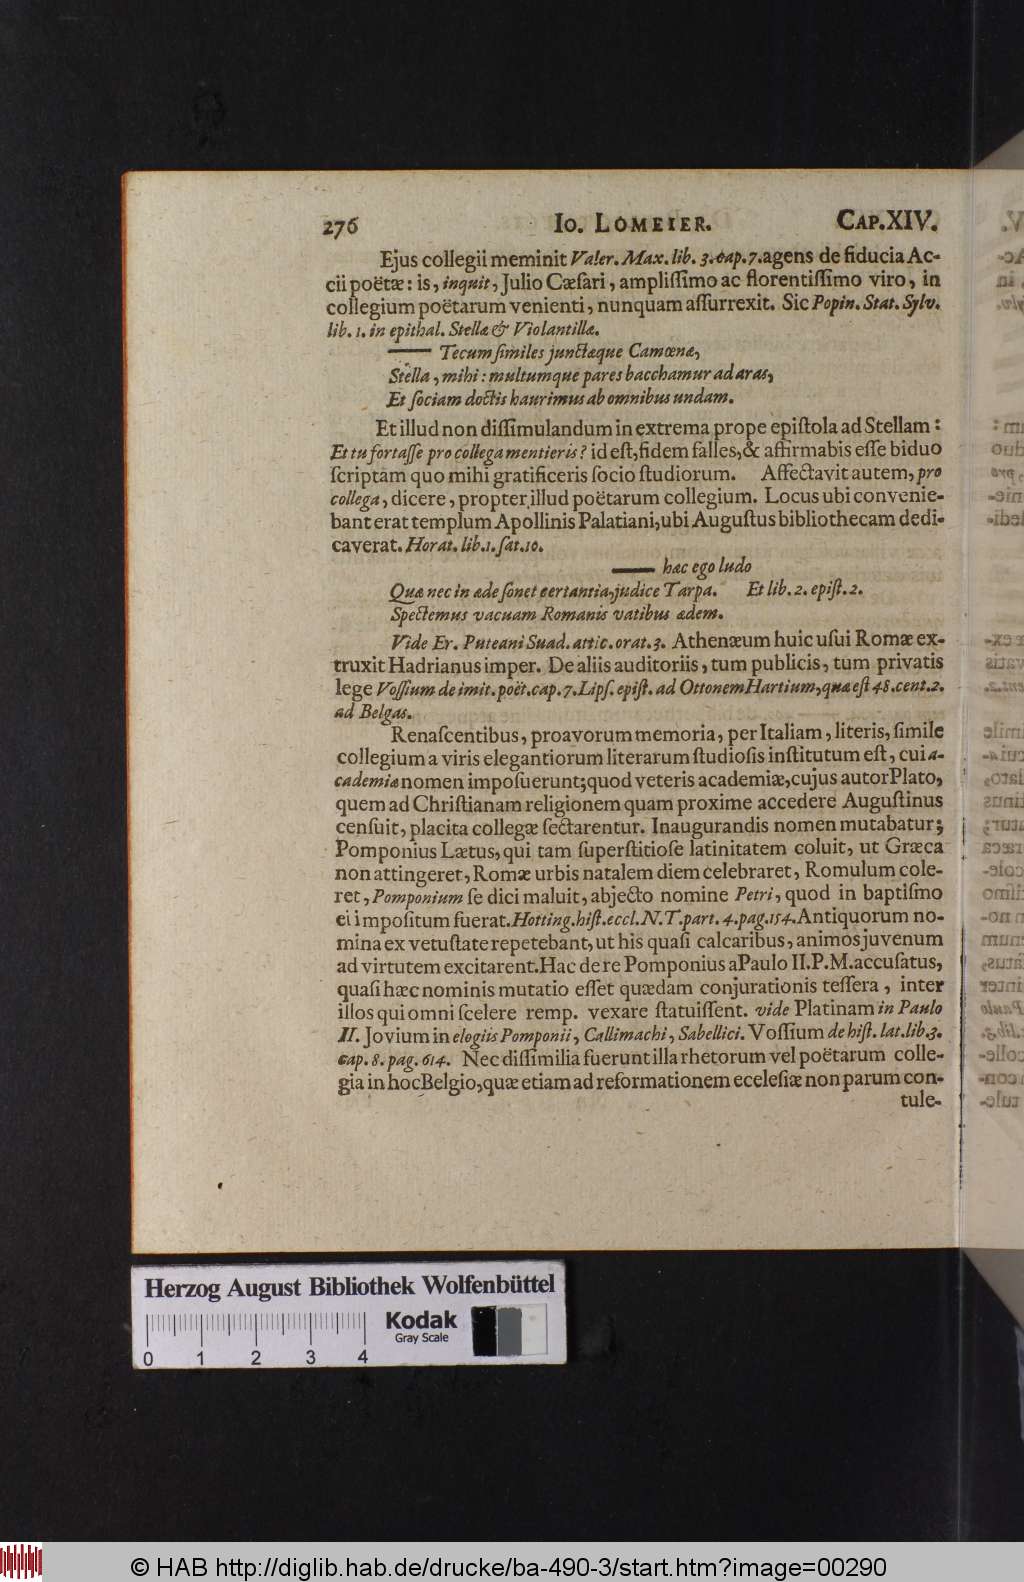 276 Io. Lomeier. Cap. XIV.
Ejus collegii meminit Valer. Max. lib. 3. cap. 7. agens de fiducia Ac-
cii poëtæ: is, inquit, Julio Cæſari, ampliſſimo ac florentiſſimo viro, in
collegium poëtarum venienti, nunquam aſſurrexit. Sic Popin. Stat. Sylv.
lib. 1. in epithal. Stellæ & Violantillæ.
—— Tecum ſimiles junctæque Camœnæ,
Stella, mihi: multumque pares bacchamur ad aras,
Et ſociam doctis haurimus ab omnibus undam.
Et illud non diſſimulandum in extrema prope epiſtola ad Stellam:
Et tu fortaſſe pro collega mentieris? id eſt, fidem falles, & affirmabis eſſe biduo
ſcriptam quo mihi gratificeris ſocio ſtudiorum. Affectavit autem, pro
collega, dicere, propter illud poëtarum collegium. Locus ubi convenie-
bant erat templum Apollinis Palatiani, ubi Auguſtus bibliothecam dedi-
caverat. Horat. lib. 1. ſat. 10.
—— hæc ego ludo
Quæ nec in æde ſonet certantia, judice Tarpa. Et lib. 2. epiſt. 2.
Spectemus vacuam Romanis vatibus ædem.
Vide Er. Puteani Suad. attic. orat. 3. Athenæum huic uſui Romæ ex-
truxit Hadrianus imper. De aliis auditoriis, tum publicis, tum privatis
lege Voſſium de imit. poët. cap. 7. Lipſ. epiſt. ad Ottonem Hartium, quæ eſt 48. cent. 2.
ad Belgas.
Renaſcentibus, proavorum memoria, per Italiam, literis, ſimile
collegium a viris elegantiorum literarum ſtudioſis inſtitutum eſt, cui a-
cademiæ nomen impoſuerunt; quod veteris academiæ, cujus autor Plato,
quem ad Chriſtianam religionem quam proxime accedere Auguſtinus
cenſuit, placita collegæ ſectarentur. Inaugurandis nomen mutabatur;
Pomponius Lætus, qui tam ſuperſtitioſe latinitatem coluit, ut Græca
non attingeret, Romæ urbis natalem diem celebraret, Romulum cole-
ret, Pomponium ſe dici maluit, abjecto nomine Petri, quod in baptiſmo
ei impoſitum fuerat. Hotting. hiſt. eccl. N. T. part. 4. pag. 154. Antiquorum no-
mina ex vetuſtate repetebant, ut his quaſi calcaribus, animos juvenum
ad virtutem excitarent. Hac de re Pomponius a Paulo II. P. M. accuſatus,
quaſi hæc nominis mutatio eſſet quædam conjurationis teſſera, inter
illos qui omni ſcelere remp. vexare ſtatuiſſent. vide Platinam in Paulo
II. Jovium in elogiis Pomponii, Callimachi, Sabellici. Voſſium de hiſt. lat. lib. 3.
cap. 8. pag. 614. Nec diſſimilia fuerunt illa rhetorum vel poëtarum colle-
gia in hoc Belgio, quæ etiam ad reformationem eceleſiæ non parum con-
tule-
Herzog August Bibliothek Wolfenbüttel
Kodak
Gray Scale
0 1 2 3 4
© HAB http://diglib.hab.de/drucke/ba-490-3/start.htm?image=00290